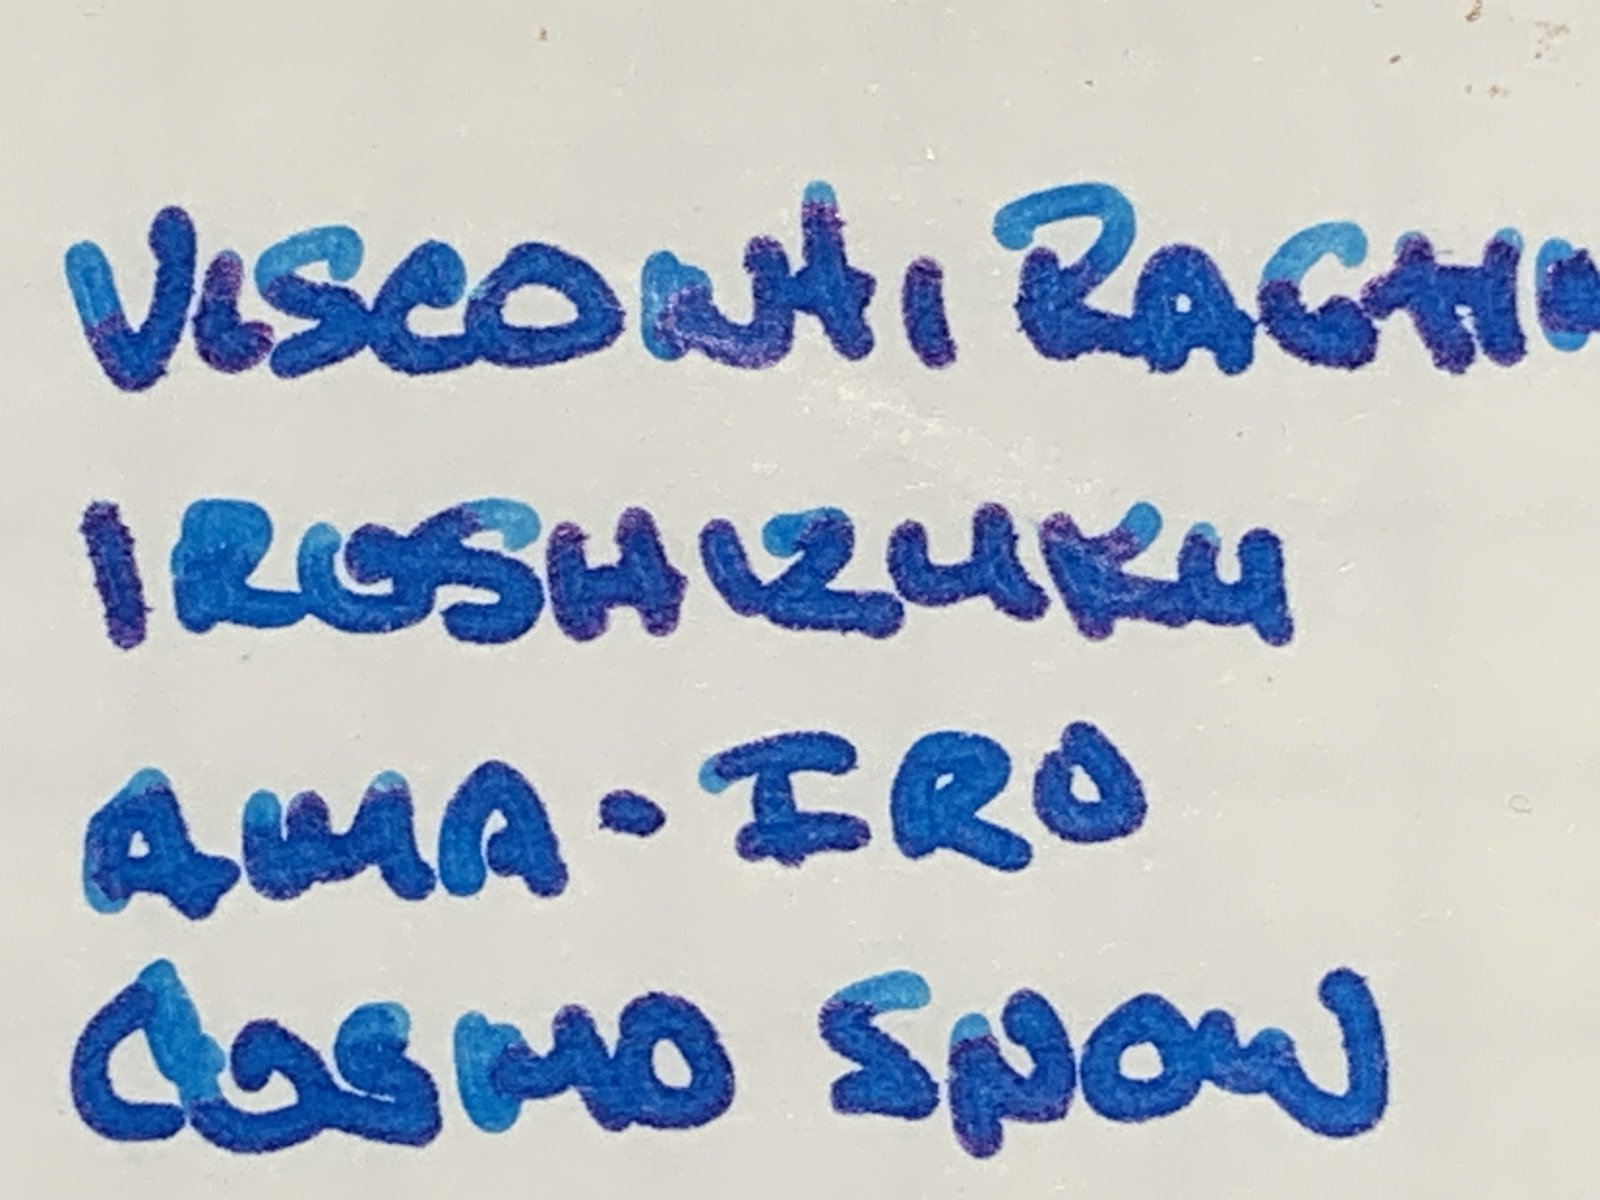 VISCONTI RAGH
IROSHIZUKU
AMA-IRO
COSMO SNOW